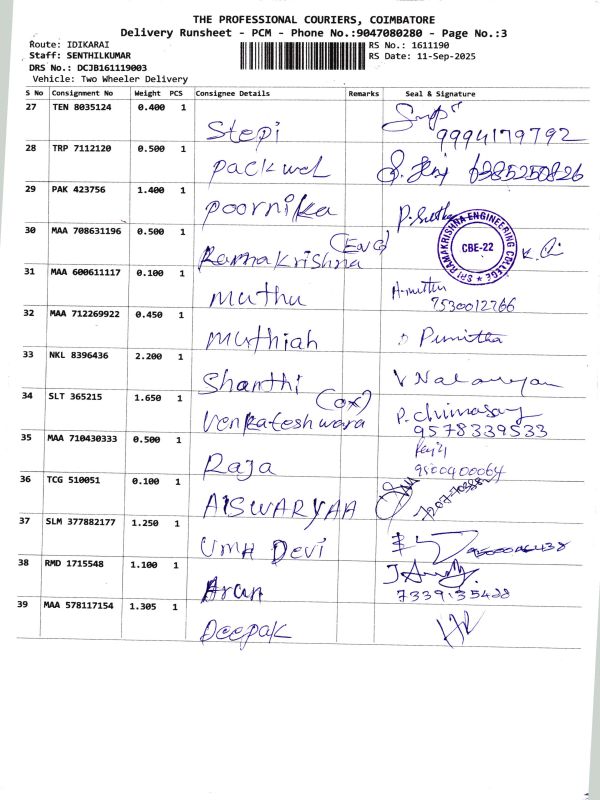 THE PROFESSIONAL COURIERS, COIMBATORE
Delivery Runsheet - PCM - Phone No.:9047080280 - Page No.:3
Route: IDIKARAI
RS No.: 1611190
Staff: SENTHILKUMAR
RS Date: 11-Sep-2025
DRS No.: DCJB161119003
Vehicle: Two Wheeler Delivery
S No Consignment No Weight PCS Consignee Details Remarks Seal & Signature
27 TEN 8035124 0.400 1
Stepi
9994179792
28 TRP 7112120 0.500 1
packwel
6385250826
29 PAK 423756 1.400 1
poornika
30 MAA 708631196 0.500 1
(ENG)
Ramakrishna
SRI RAMAKRISHNA ENGINEERING COLLEGE
CBE-22
31 MAA 600611117 0.100 1
muthu
A.muthu
7530012766
32 MAA 712269922 0.450 1
muthiah
Punitha
33 NKL 8396436 2.200 1
Shanthi
34 SLT 365215 1.650 1
(OX)
Venkateshwara
9578339533
35 MAA 710430333 0.500 1
Raja
9500400064
36 TCG 510051 0.100 1
AISWARYAA
37 SLM 377882177 1.250 1
UMA Devi
38 RMD 1715548 1.100 1
Arun
7339135428
39 MAA 578117154 1.305 1
Deepak